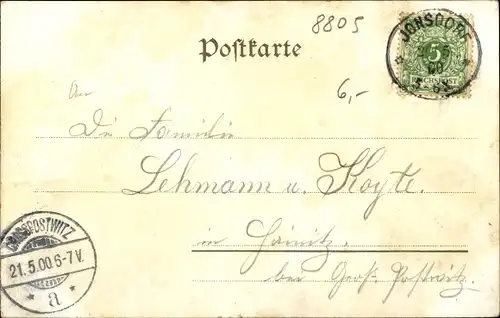 8805
Postkarte
JONSDORF
5
REICHSPOST
6,-
An
Die Familie
Lehmann u. Koyte.
in Hainitz
bei Groß-Postwitz.
GROSSPOSTWITZ
21.5.00.6-7V.
* a *